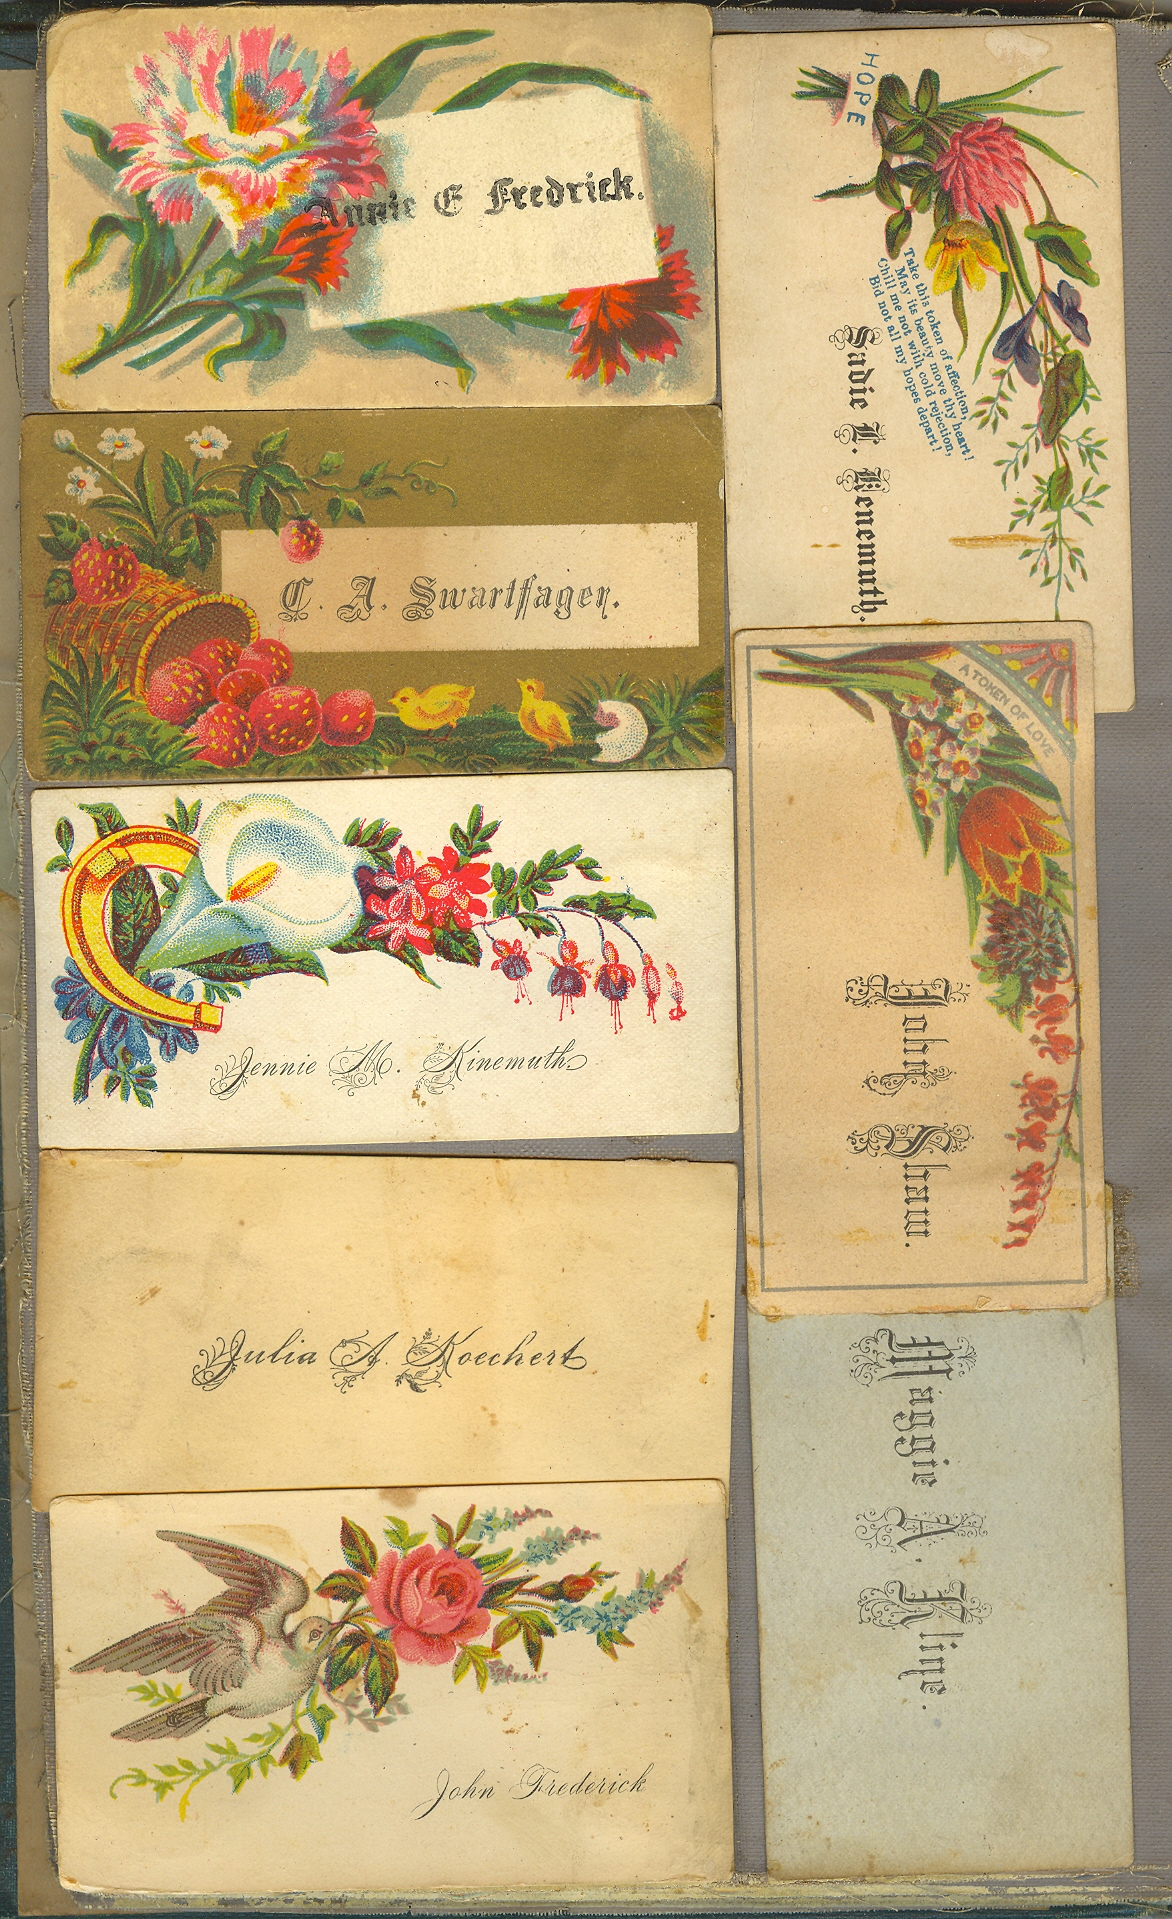 Annie E Fredrick.
C. A. Swartfager.
Jennie M. Kinemuth.
Julia A. Koechert
John Frederick
HOPE
Take this token of affection,
May its beauty move thy heart!
Chill me not with cold rejection,
Bid not all my hopes depart!
Sadie L. Benemuth.
A TOKEN OF LOVE
John Shaw.
Maggie A. Kline.